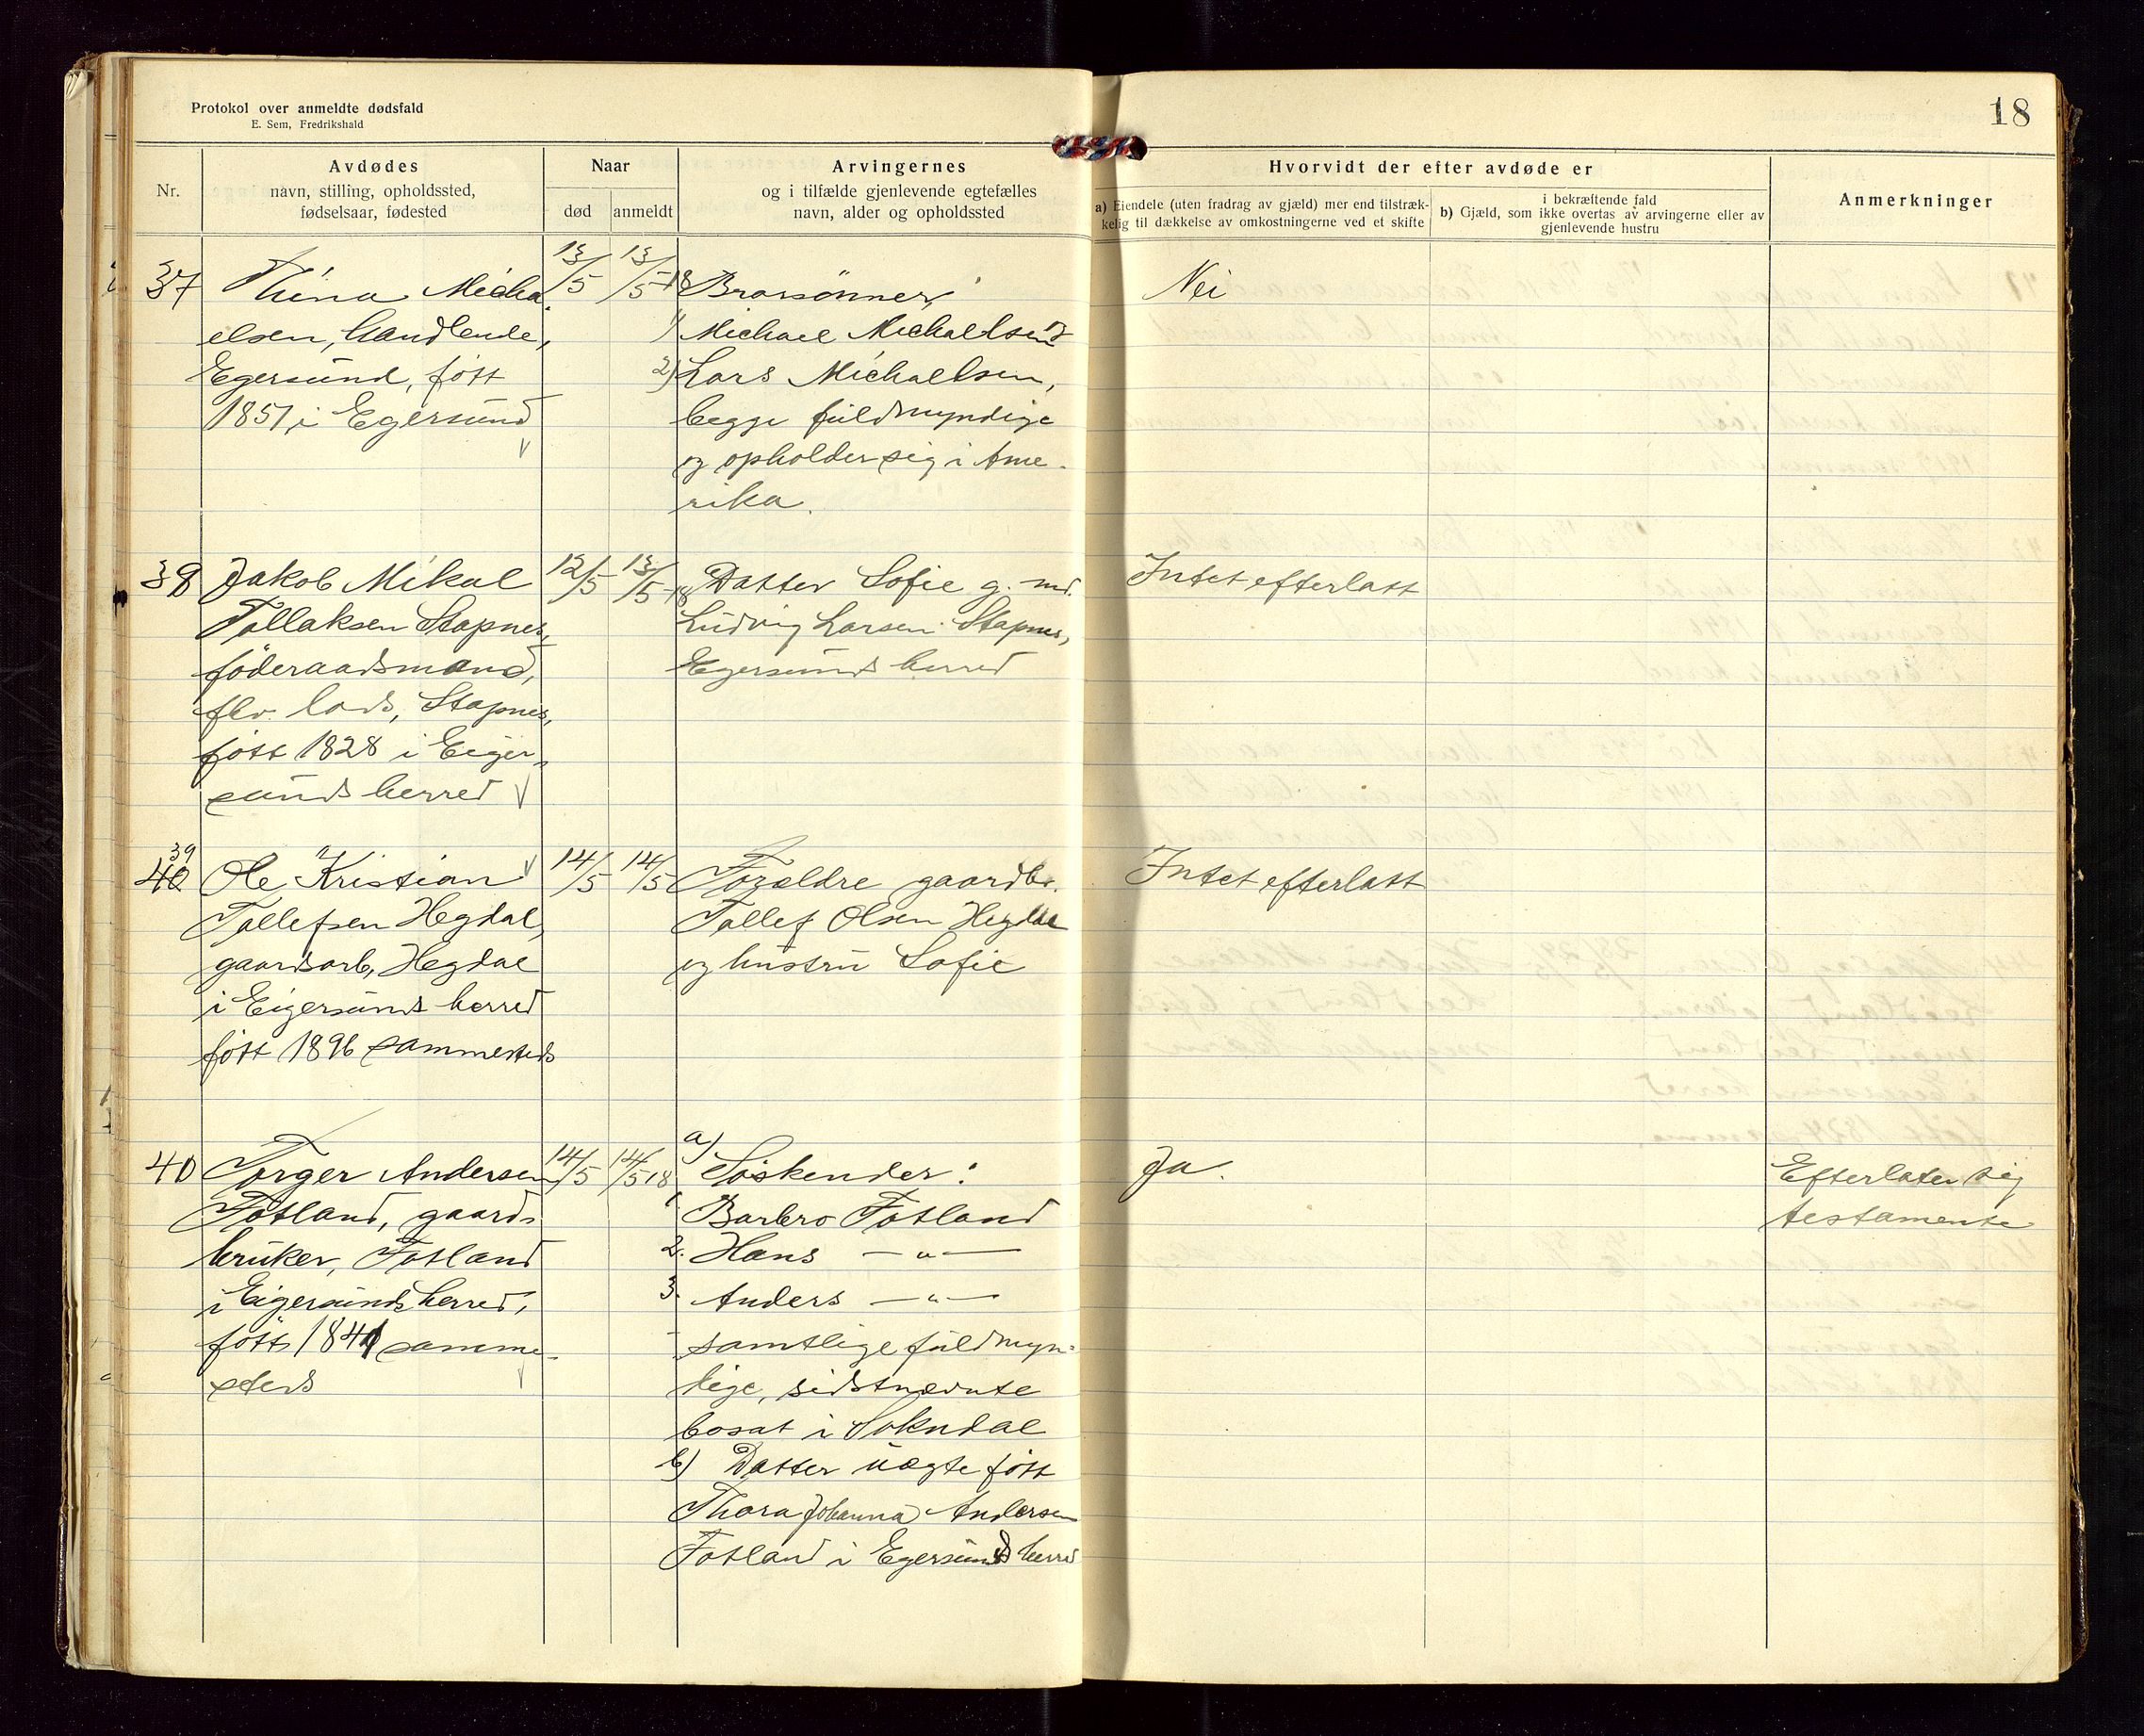 Protokol over anmeldte dødsfald
E. Sem, Fredrikshald
18
Nr.
Avdødes
navn, stilling, opholdssted,
fødselsaar, fødested
Naar
død
anmeldt
Arvingernes
og i tilfælde gjenlevende egtefælles
navn, alder og opholdssted
Hvorvidt der efter avdøde er
a) Eiendele (uten fradrag av gjæld) mer end tilstræk-
kelig til dækkelse av omkostningerne ved et skifte
i bekræftende fald
b) Gjæld, som ikke overtas av arvingerne eller av
gjenlevende hustru
Anmerkninger
37
Thina Micha
elsen, handlende,
Egersund, født
1851, i Egersund
13/5
13/5 18
Brorsønner,
1) Michael Michaelsen og
2) Lars Michaelsen,
begge fuldmyndige
og opholder sig i Ame-
rika.
Nei
38
Jakob Mikal
Tollaksen Stapnes,
føderaadsmand,
flv. lods, Stapnes,
født 1828 i Eiger-
sunds herred
12/5
13/5 18
Datter Sofie g. md.
Ludvig Larsen Stapnes,
Egersunds herred
Intet efterlatt
39
40
Ole Kristian
Tollefsen Hegdal,
gaardsarb, Hegdal
i Eigersunds herred
født 1896 sammesteds
14/5
14/5
Forældre gaardbr.
Tollef Olsen Hegdal
og hustru Sofie
Intet efterlatt
40
Torger Andersen
Fotland, gaard-
bruker, Fotland
i Eigersunds herred,
født 1841 samme-
steds
14/5
14/5 18
a)
Søskender:
1 Barbro Fotland
2. Hans — " —
3. Anders — " —
samtlige fuldmyn-
dige, sidstnævnte
bosat i Sokndal
b) Datter uægte født
Thora Johanna Andersen
Fotland i Egersunds herred
Ja.
Efterlater sig
testamente